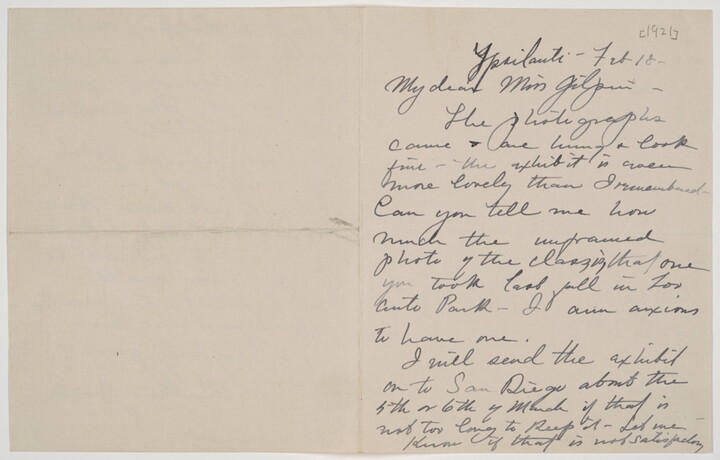 [1921]
Ypsilanti - Feb 18 -
My dear Miss Gilpin -
The photographs
came & are hung & look
fine - the exhibit is even
more lovely than I remembered -
Can you tell me how
much the unframed
photo of the
you took last fall in
Park - I am anxious
to have one.
I will send the exhibit
on to San Diego about the
5th or 6th of March if that is
not too long to keep it - Let me
know if that is not satisfactory